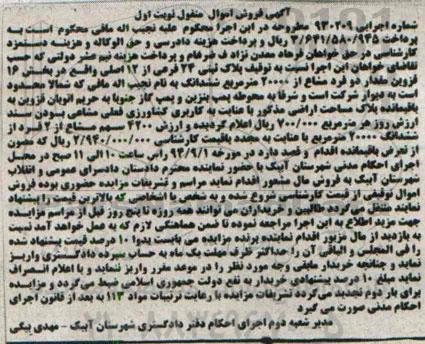 آگهی فروش اموال منقول نوبت اول
شماره اجرایی ۹۳۰۲۰۹ مطروحه در این اجرا محکوم علیه نجیب اله مافی محکوم است به
پرداخت ریال و پرداخت هزینه دادرسی و حق الوکاله و هزینه دستمزد
کارشناسی در حق خواهان فرهاد معدن نژاد در طرفام و پرداخت هزینه نیم عشر دولتی که حسب
تقاضای خواهان این اجرا است به توقیف پلاک ثبتی ۲۳ فرعی از ۷ اصلی واقع در بخش ۱۶
قزوین مقدار دو فرد مشاع از ۲۰۰۰۰ مترمربع ششدانگ به نام نجیب اله مافی که شمالا محدود
به دیوار شرکت است و شرقا به محوطه پمپ بنزین و پمپ گاز جنوبا به حریم اتوبان قزوین به
باقیمانده پلاک مساحت اراضی مذکور با عنایت به کاربری کشاورزی فعلی مشاعی بودن سند
ارزش روز هر مترمربع ۷۰۰/۰۰۰ ریال اعلام گردیده و ارزش ۴۲۰۰ سهم مشاع از ۲ فرد از
ششدانگ ۲۰۰۰۰ مترمربع با عنایت به مجدد باقیت کارشناسی ۲/۹۴۰/۰۰۰/۰۰۰ ریال که مصون
از تعرض باقیمانده اقدام و قصد دارد در مورخه ۹۴/۹/۱ راس ساعت ۱۰ الی ۱۱ صبح در محل
اجرای احکام مدنی شهرستان آبیک با حضور نماینده محترم دادستان دادسرای عمومی و انقلاب
شهرستان آبیک به فروش مال مذکور اقدام نماید مراسم و تشریفات مزایده حضوری بوده فروش
اموال توقیفی از قیمت کارشناسی شروع شده و به شخص یا اشخاصی که بالاترین قیمت را پیشنهاد
نمایند منتقل می گردد طالبین و خریداران می توانند همه روزه تا پنج روز قبل از مراسم مزایده
جهت مزید اطلاع به دفتر اجرا مراجعه نموده تا ضمن هماهنگی لازم که به عمل خواهد آمد نسبت
به بازدید از مال مزبور اقدام نمایند برنده مزایده می بایست بدوا ۱۰ درصد قیمت پیشنهاد شده
را فی المجلس و الباقی آن را حداکثر ظرف مهلت یک ماه به حساب سپرده دادگستری واریز
نماید و چنانچه خریدار مابقی وجه مورد نظر را در موعد مقرر واریز ننماید و یا اعلام انصراف
نماید مبلغ ۱۰ درصد پیشنهادی خریدار به نفع دولت جمهوری اسلامی ضبط می گردد و مزایده
برای بار دوم تجدید می گردد تشریفات مزایده با رعایت ترتیبات مواد ۱۱۳ به بعد از قانون اجرای
احکام مدنی صورت می گیرد
مدیر شعبه دوم اجرای احکام دفتر دادگستری شهرستان آبیک - مهدی بیگی